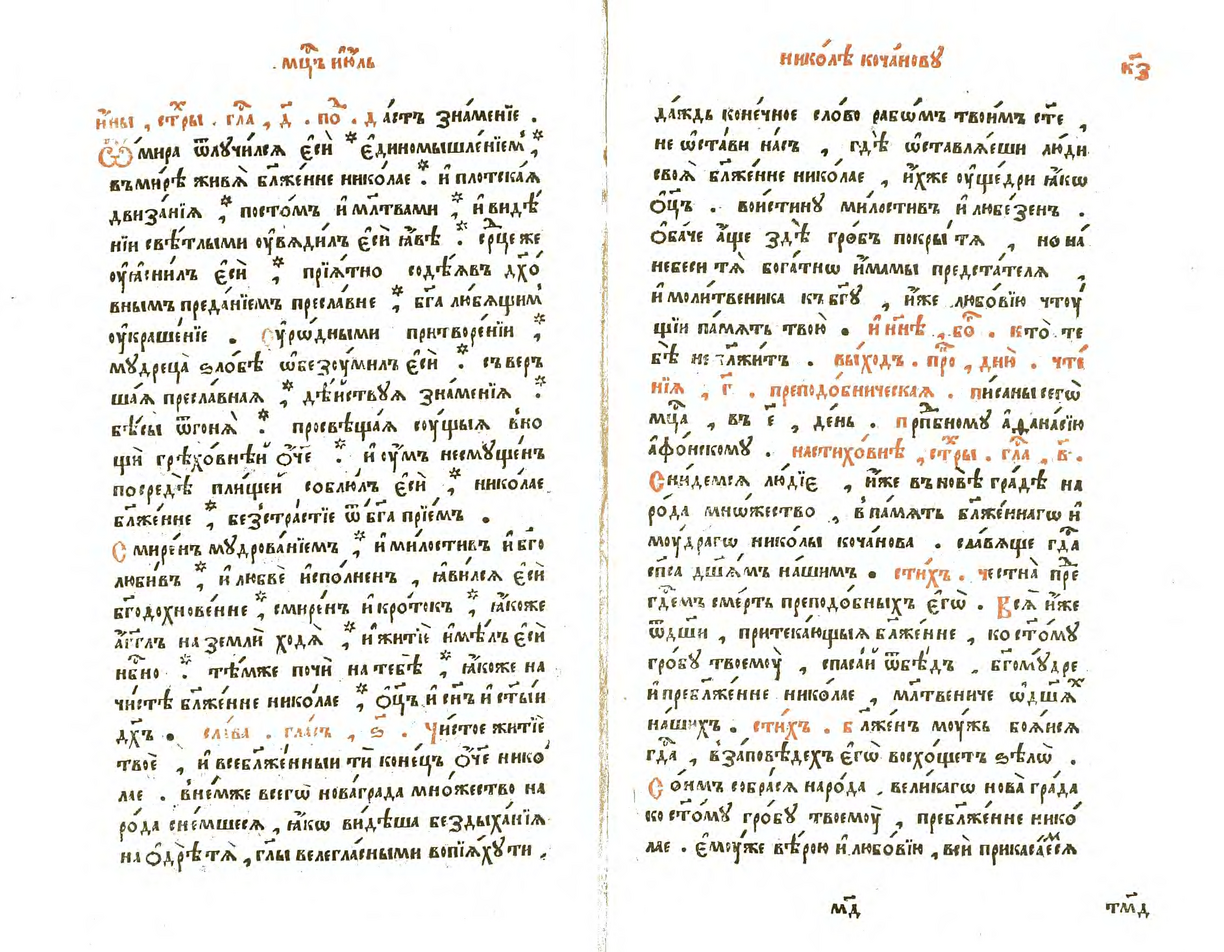 мцⷭ҇ъ і҆ю́ль
и҆ нн҃ѣ , стⷯры . глⷭ҇а , д҃ . поⷣ . да́стъ зна́менїе .
Ѿ мира ѿлучи́лсѧ є҆сѝ * є҆диномышле́нїемъ *,
въ ми́рѣ живѧ̀ бл҃же́нне нико́лае *. и҆ плотска́ѧ
движа́нїѧ *, посто́мъ и҆ мл҃твами *, и҆ видѣ́
нїи свѣ́тлыми оу҆вѧди́лъ є҆сѝ ꙗ҆́вѣ *. срⷣце же
оу҆ꙗсни́лъ є҆сѝ *, прїѧ́тно содѣ́ѧвъ дх҃о́
внымъ преда́нїемъ пресла́вне *, бг҃а лю́бѧщимъ
оу҆краше́нїе . Оу҆ро́дными притворе́нїи *,
мудреца̀ ѕло́бѣ ѡ҆безꙋ́милъ є҆сѝ *. съверъ
ша́ѧ пресла́внаѧ *, дѣ́йствуѧ зна́менїѧ *.
бѣ́сы ѿгонѧ̀ *. просвѣща́ѧ сꙋ́щыѧ в̾но
щѝ грѣхо́внѣй ѻ҆́ч҃е *. и҆ ᲂу҆́мъ несмꙋще́нъ
посредѣ̀ пли́щей соблю́лъ є҆сѝ *, нико́лае
бл҃же́нне *, безстра́стїе ѿ бг҃а прїе́мъ .
Смире́нъ мꙋ́дрованїемъ *, и҆ ми́лостивъ и҆ бг҃о
люби́въ *, и҆ любвѐ и҆спо́лненъ , ꙗ҆ви́лсѧ є҆сѝ
бг҃одохнове́нне *, смире́нъ и҆ кро́токъ *, ꙗ҆́коже
а҆́гг҃лъ на землѝ ходѧ̀ *, и҆ житїѐ и҆мѣ́лъ є҆сѝ
нбⷭ҇но *. тѣ́мже почѝ на тебѣ̀ *, ꙗ҆́коже на
чи́стѣ бл҃же́нне нико́лае *, ѻ҆ц҃ъ и҆ сн҃ъ и҆ ст҃ы́и
дх҃ъ . сла́ва . гла́съ , ѕ҃ . Чи́стое житїѐ
твоѐ , и҆ всебл҃же́нныи тѝ коне́цъ ѻ҆́ч҃е нико́
лае . в̾не́мже всегѡ̀ нова́града мно́жество на
ро́да сне́мшесѧ , ꙗ҆́кѡ ви́дѣша бездыха́нїѧ
на ѻ҆дрѣ̀ тѧ̀ , гл҃ы велегла́сными вопїѧ́ху ти ,
нико́лѣ коча́нову
к҃з
да́ждь коне́чное сло́во рабѡ́мъ твои́мъ ст҃е ,
не ѡ҆ста́ви на́съ , гдѣ̀ ѡ҆ставлѧ́еши лю́ди
своѧ̀ бл҃же́нне нико́лае , и҆́хже оу҆ще́дри ꙗ҆́кѡ
ѻ҆ц҃ъ . вои́стину ми́лостивъ и҆ любе́зенъ .
ѻ҆ба́че а҆́ще здѣ̀ гро́бъ покры́ тѧ , но на́
небеси тѧ̀ бога́тнѡ и҆́мамы предста́телѧ ,
и҆ моли́твеника къ бг҃у , и҆́же любо́вїю чтоу́
щїи па́мѧть твою̀ . и҆ нн҃ѣ , бо҃ . кто̀ те
бѐ не ᲂу҆бл҃жи́тъ . вы́ходъ . проⷦ҇ , дню̀ . чте́
нїѧ , г҃ . преподо́бническаѧ . писаны сегѡ̀
мцⷭ҇а , въ є҃ , де́нь . прпⷣбному а҆ѳана́сїю
а҆ѳо́нскому . настихо́внѣ , стⷯры . глⷭ҇а , в҃ .
Сни́демсѧ лю́дїє , и҆́же въ но́вѣ гра́дѣ на
ро́да мно́жество , в̾ па́мѧть бл҃же́ннагѡ и҆
моу́драгѡ нико́лы коча́нова . сла́вѧще гдⷭ҇а
сп҃са дш҃а́мъ на́шимъ . сти́хъ . честна̀ пре
гдⷭ҇емъ сме́рть преподо́бныхъ є҆гѡ̀ . Всѝ и҆́же
ѿ дш҃и , притека́ющыѧ бл҃же́нне , ко ст҃о́му
гро́бу твоемоу̀ , спаса́й ѿ бѣ́дъ , бг҃ому́дре
и҆ пребл҃же́нне нико́лае , мл҃твениче ѡ҆ дш҃а́хъ
на́шихъ . сти́хъ . бл҃же́нъ моу́жъ боѧ́исѧ
гдⷭ҇а , в̾ за́повѣдехъ є҆гѡ̀ восхо́щетъ ѕѣлѡ̀ .
Сѻ́нмъ собра́сѧ наро́да , вели́кагѡ но́ва гра́да
ко ст҃о́му гро́бу твоемоу̀ , пребл҃же́нне нико́
лае . є҆моу́же вѣ́рою и҆ любо́вїю , всѝ прикаса́емсѧ
м҃д
тм҃д